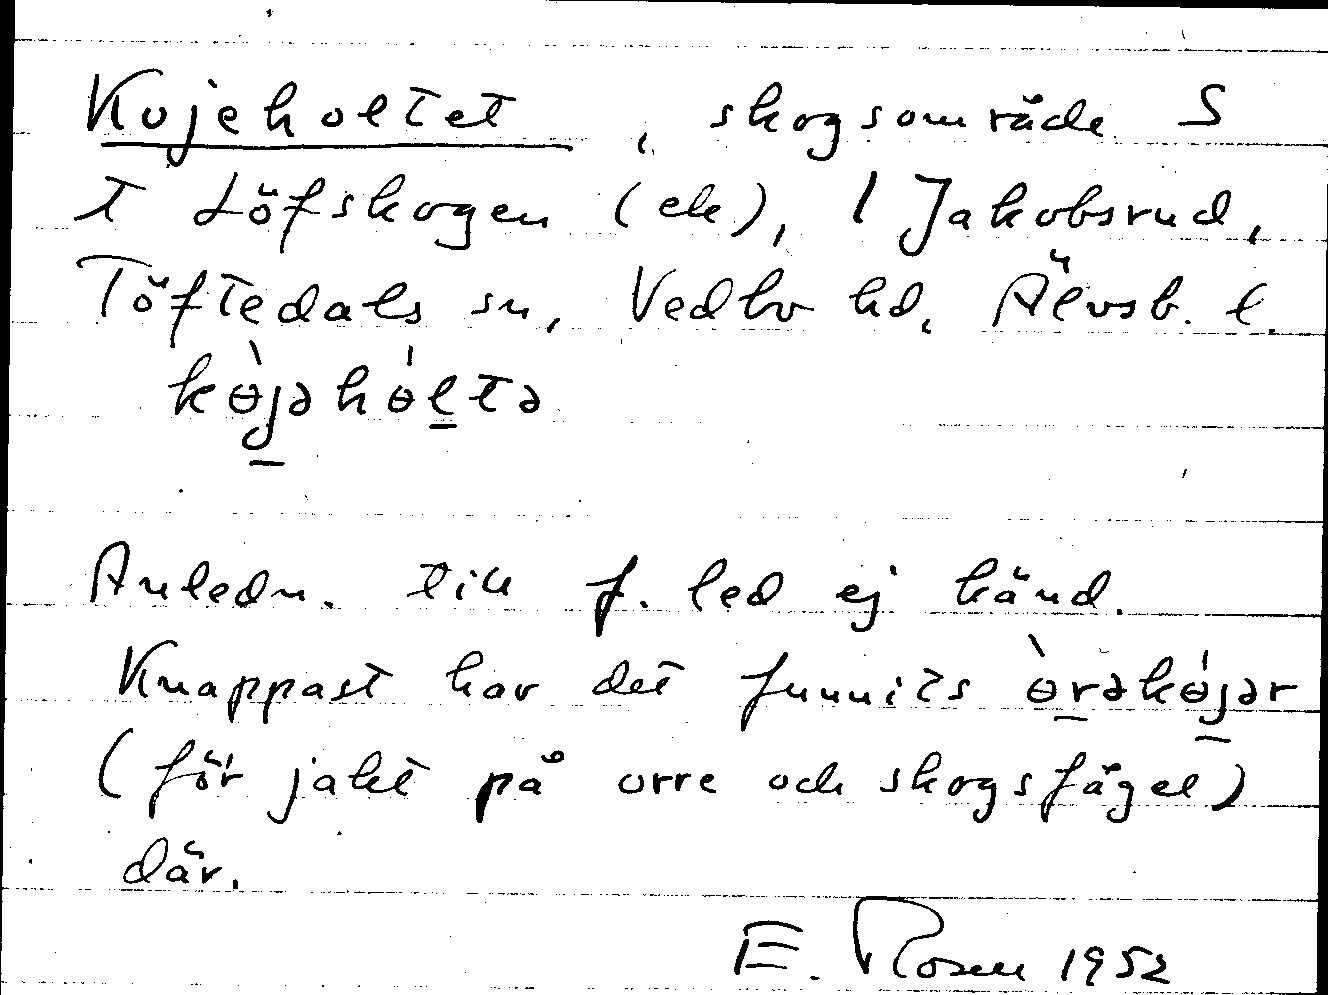 Kojeholtet, skogsområde S
T Löfskogen (ek), 1 Jakobsrud,
Töftedals sn, Vedbo hd, Älvsb. l.
kɵ̀jəhɵ́ltə
Anledn. till f. led ej känd.
Knappast har det funnits ɵ̀rəkɵ́jər
(för jakt på orre och skogsfågel)
där.
E. Rosen 1952